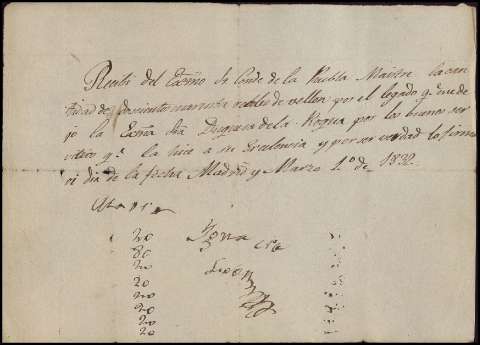 Recibi del Exmo Sr Conde de la Puebla Maestre la can
tidad de doscientos reales de vellon por el legado qe me de
jo la Exma Dugesa de la Rogua por los buenos ser
vicios qe la hice a su Ecelencia y por ser verdad lo firmo
oi dia de la fecha Madrid y Marzo 1º de 1832
20
80
20
20
20
20
20
20